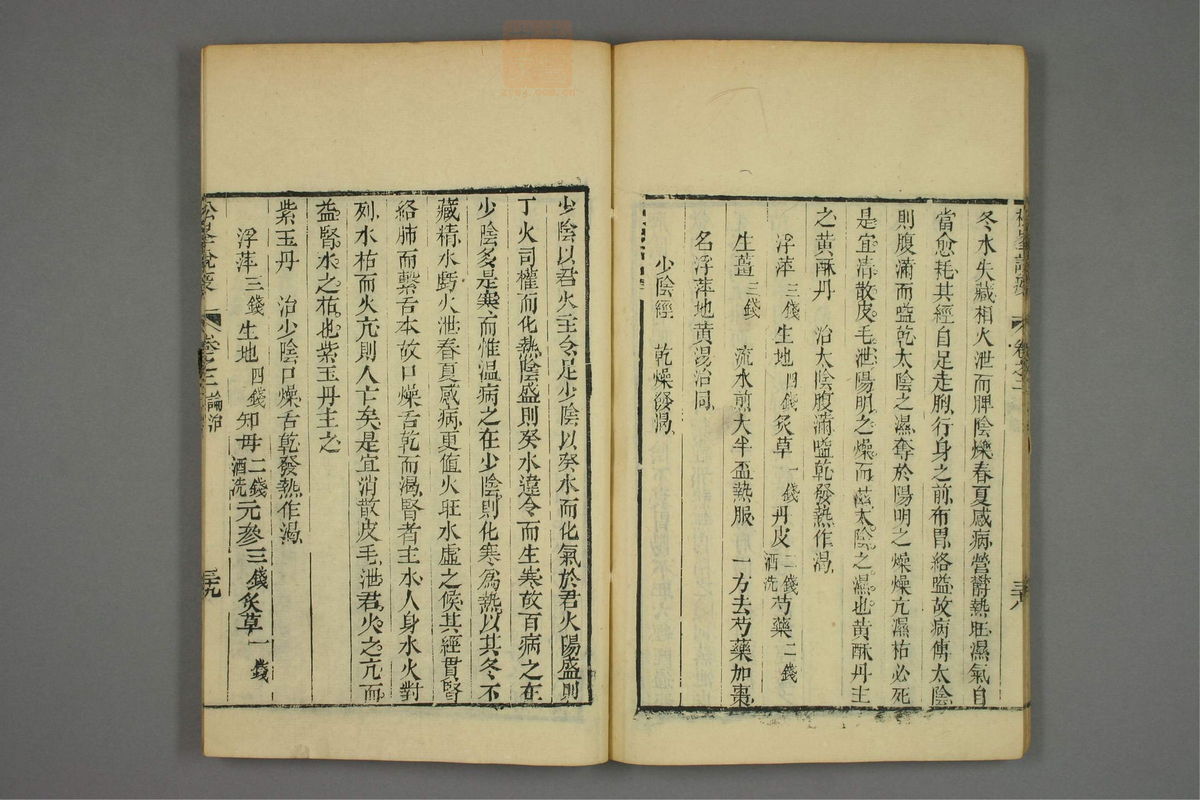 冬水失藏相火泄而脾陰爍春夏感病營鬱熱旺濕氣自
當愈耗其經自足走胸行身之前布胃絡嗌故病傳太陰
則腹滿而嗌乾太陰之濕奪於陽明之燥燥亢濕枯必死
是宜清散皮毛泄陽明之燥而滋太陰之濕也黃酥丹主
之黃酥丹　治太陰腹滿嗌乾發熱作渴
浮萍三錢生地四錢炙草一錢丹皮二錢酒洗芍藥二錢
生薑三錢　流水煎大半盃熱服　一方去芍藥加棗
名浮萍地黃湯治同
少陰經　乾燥發渴
卷之三
三十八
少陰以君火主令足少陰以癸水而化氣於君火陽盛則
丁火司權而化熱陰盛則癸水違令而生寒故百病之在
少陰多是寒而惟溫病之在少陰則化寒為熱以其冬不
藏精水虧火泄春夏感病更值火旺水虛之候其經貫腎
絡肺而繫舌本故口燥舌乾而渴腎者主水人身水火對
列水枯而火亢則人亡矣是宜消散皮毛泄君火之亢而
益腎水之枯也紫玉丹主之
紫玉丹　治少陰口燥舌乾發熱作渴
浮萍三錢生地四錢知母二錢酒洗元參三錢炙草一錢
松峯說疫
卷之三　論治
三十九